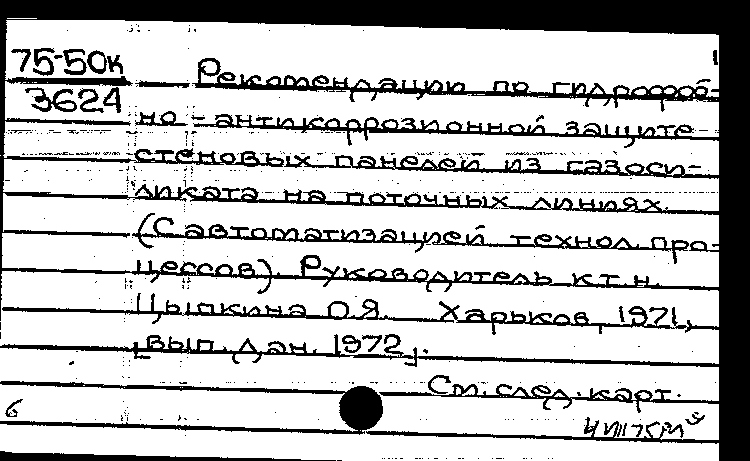 1
75-50к
3624
Рекомендации по гидрофоб-
но-антикоррозионной защите
стеновых панелей из газоси-
ликата на поточных линиях.
(С автоматизацией технол. про-
цессов). Руководитель к.т.н.
Цыпкина О.Я. Харьков, 1971,
[вып. дан. 1972].
См. след. карт.
6